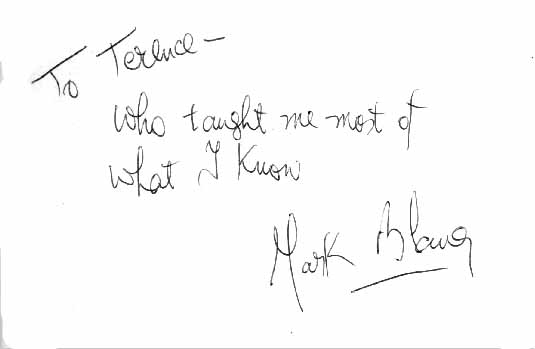 To Terence –
who taught me most of
what I know
Mark Blaug